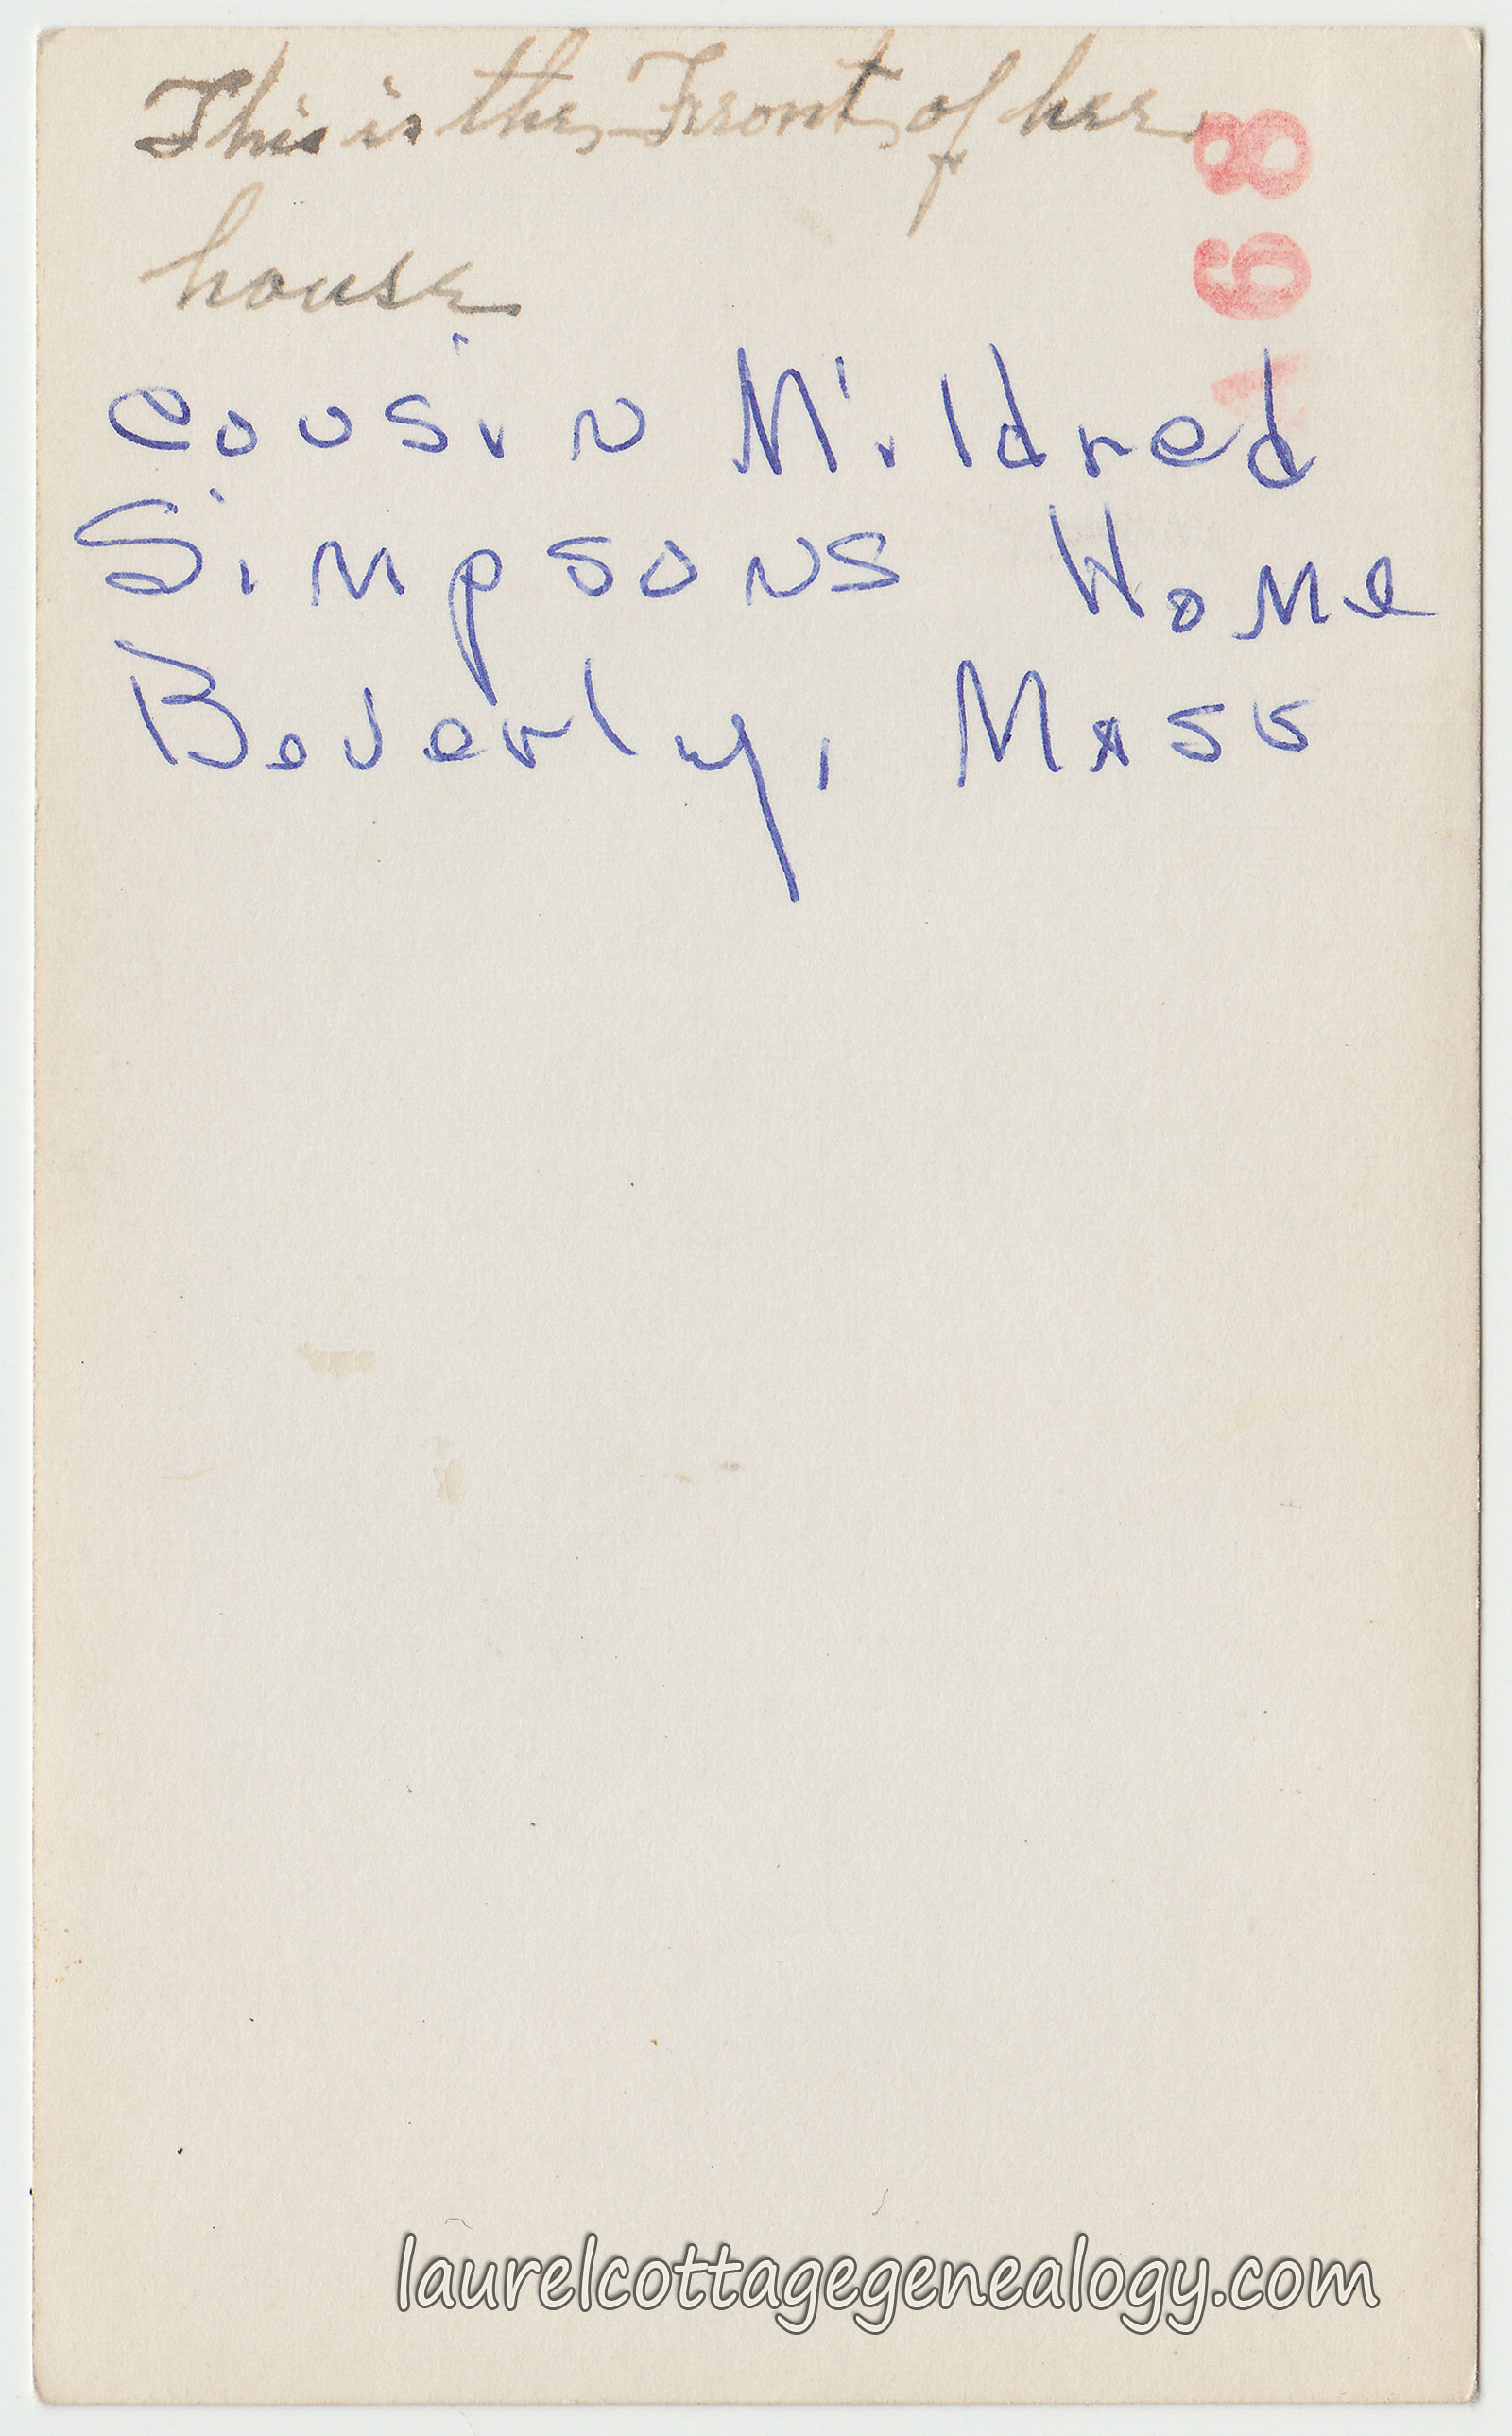 This is the Front of her
house
Cousin Mildred
Simpsons Home
Beverly, Mass
A68
laurelcottagegenealogy.com